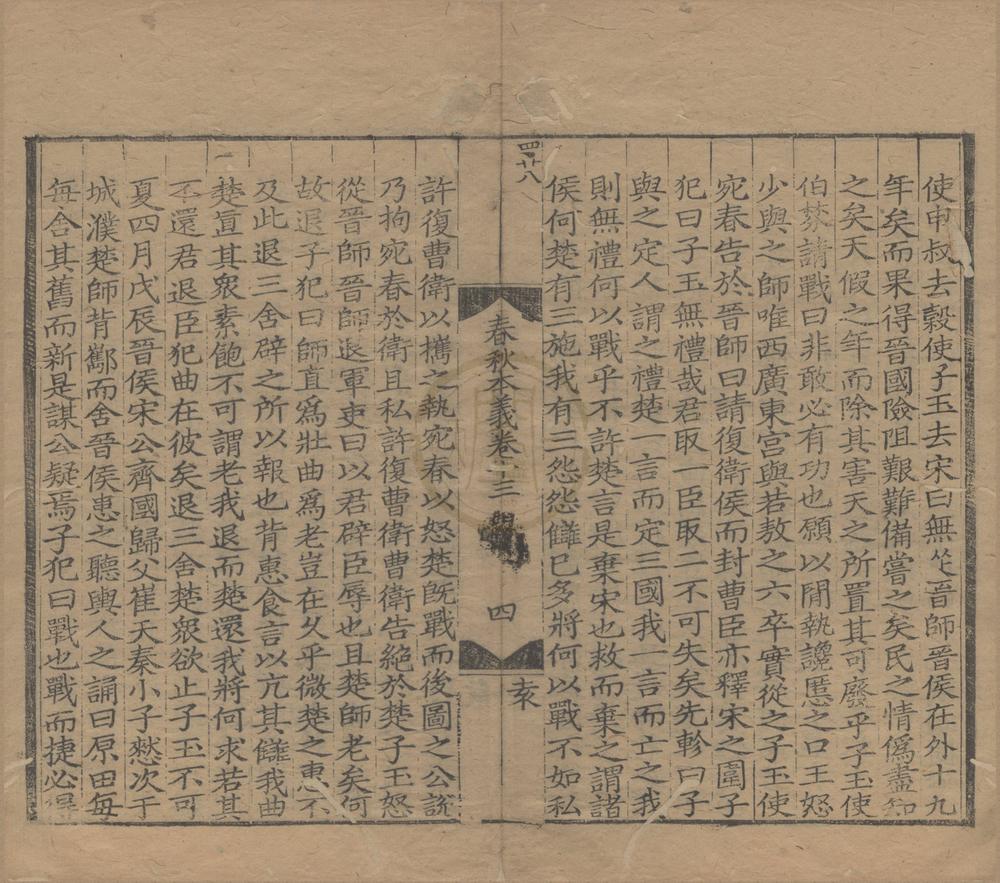 使申叔去穀使子玉去宋曰無從晉師晉侯在外十九
年矣而果得晉國險阻艱難備嘗之矣民之情僞盡知
之矣天假之年而除其害天之所置其可廢乎子玉使
伯棼請戰曰非敢必有功也願以閒執讒慝之口王怒
少與之師唯西廣東宮與若敖之六卒實從之子玉使
宛春告於晉師曰請復衛侯而封曹臣亦釋宋之圍子
犯曰子玉無禮哉君取一臣取二不可失矣先軫曰子
與之定人謂之禮楚一言而定三國我一言而亡之我
則無禮何以戰乎不許楚言是棄宋也救而棄之謂諸
侯何楚有三施我有三怨怨讎已多將何以戰不如私
四廿八
春秋本義卷十三
四
許復曹衛以攜之執宛春以怒楚旣戰而後圖之公說
乃拘宛春於衛且私許復曹衛曹衛告絕於楚子玉怒
從晉師晉師退軍吏曰以君辟臣辱也且楚師老矣何
故退子犯曰師直爲壯曲爲老豈在久乎微楚之惠不
及此退三舍辟之所以報也背惠食言以亢其讎我曲
楚直其衆素飽不可謂老我退而楚還我將何求若其
不還君退臣犯曲在彼矣退三舍楚衆欲止子玉不可
夏四月戊辰晉侯宋公齊國歸父崔夭秦小子憖次于
城濮楚師背酅而舍晉侯患之聽輿人之誦曰原田每
每舍其舊而新是謀公疑焉子犯曰戰也戰而捷必得